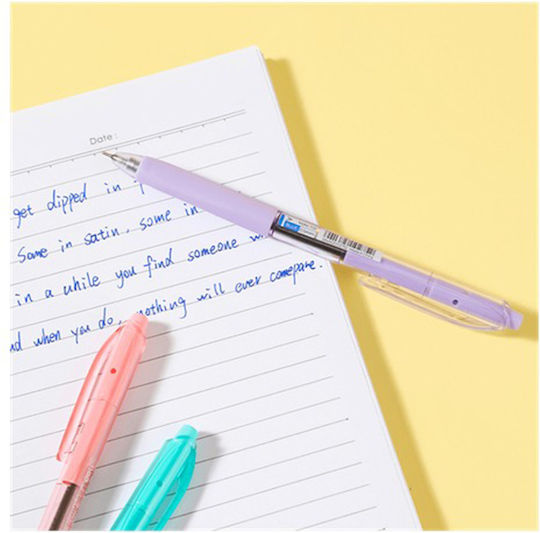 Date:
get dipped in
Some in satin, some in
in a while you find someone w
nd when you do, nothing will ever comepare.
BLUE